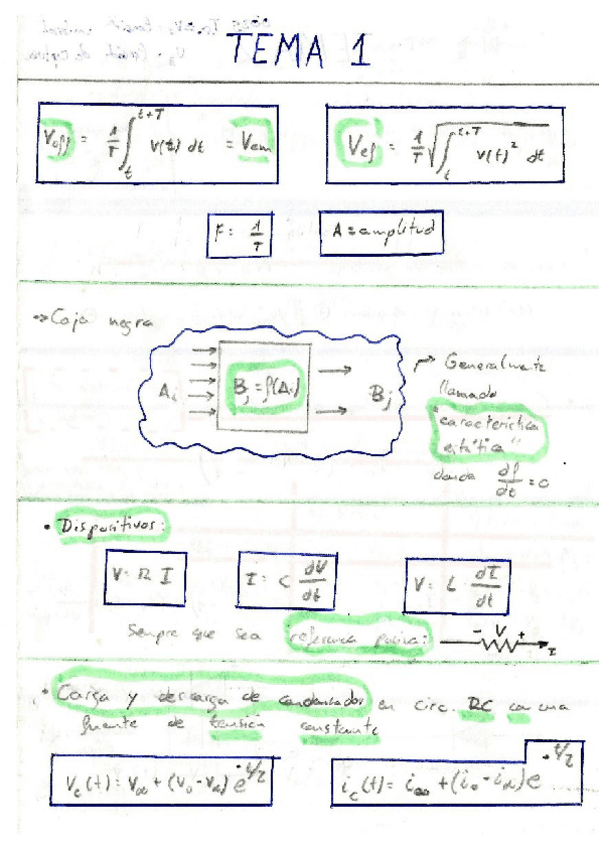 TEMA 1
Voff = 1/T ∫_t^{t+T} v(t) dt = Vem
Vef = 1/T √∫_t^{t+T} v(t)² dt
F = 1/T
A = amplitud
⇒ Caja negra
Ai
Bj = f(Ai)
Bj
→ Generalmente
llamada
"característica
estática"
donde df/dt = 0
• Dispositivos:
V = R I
I = C dV/dt
V = L dI/dt
Siempre que sea referencia pasiva:
- V +
I
• Carga y descarga de condensador en circ. RC con una
fuente de tensión constante
Vc(t) = V∞ + (V0 - V∞) e^{-t/τ}
ic(t) = i∞ + (i0 - i∞) e^{-t/τ}